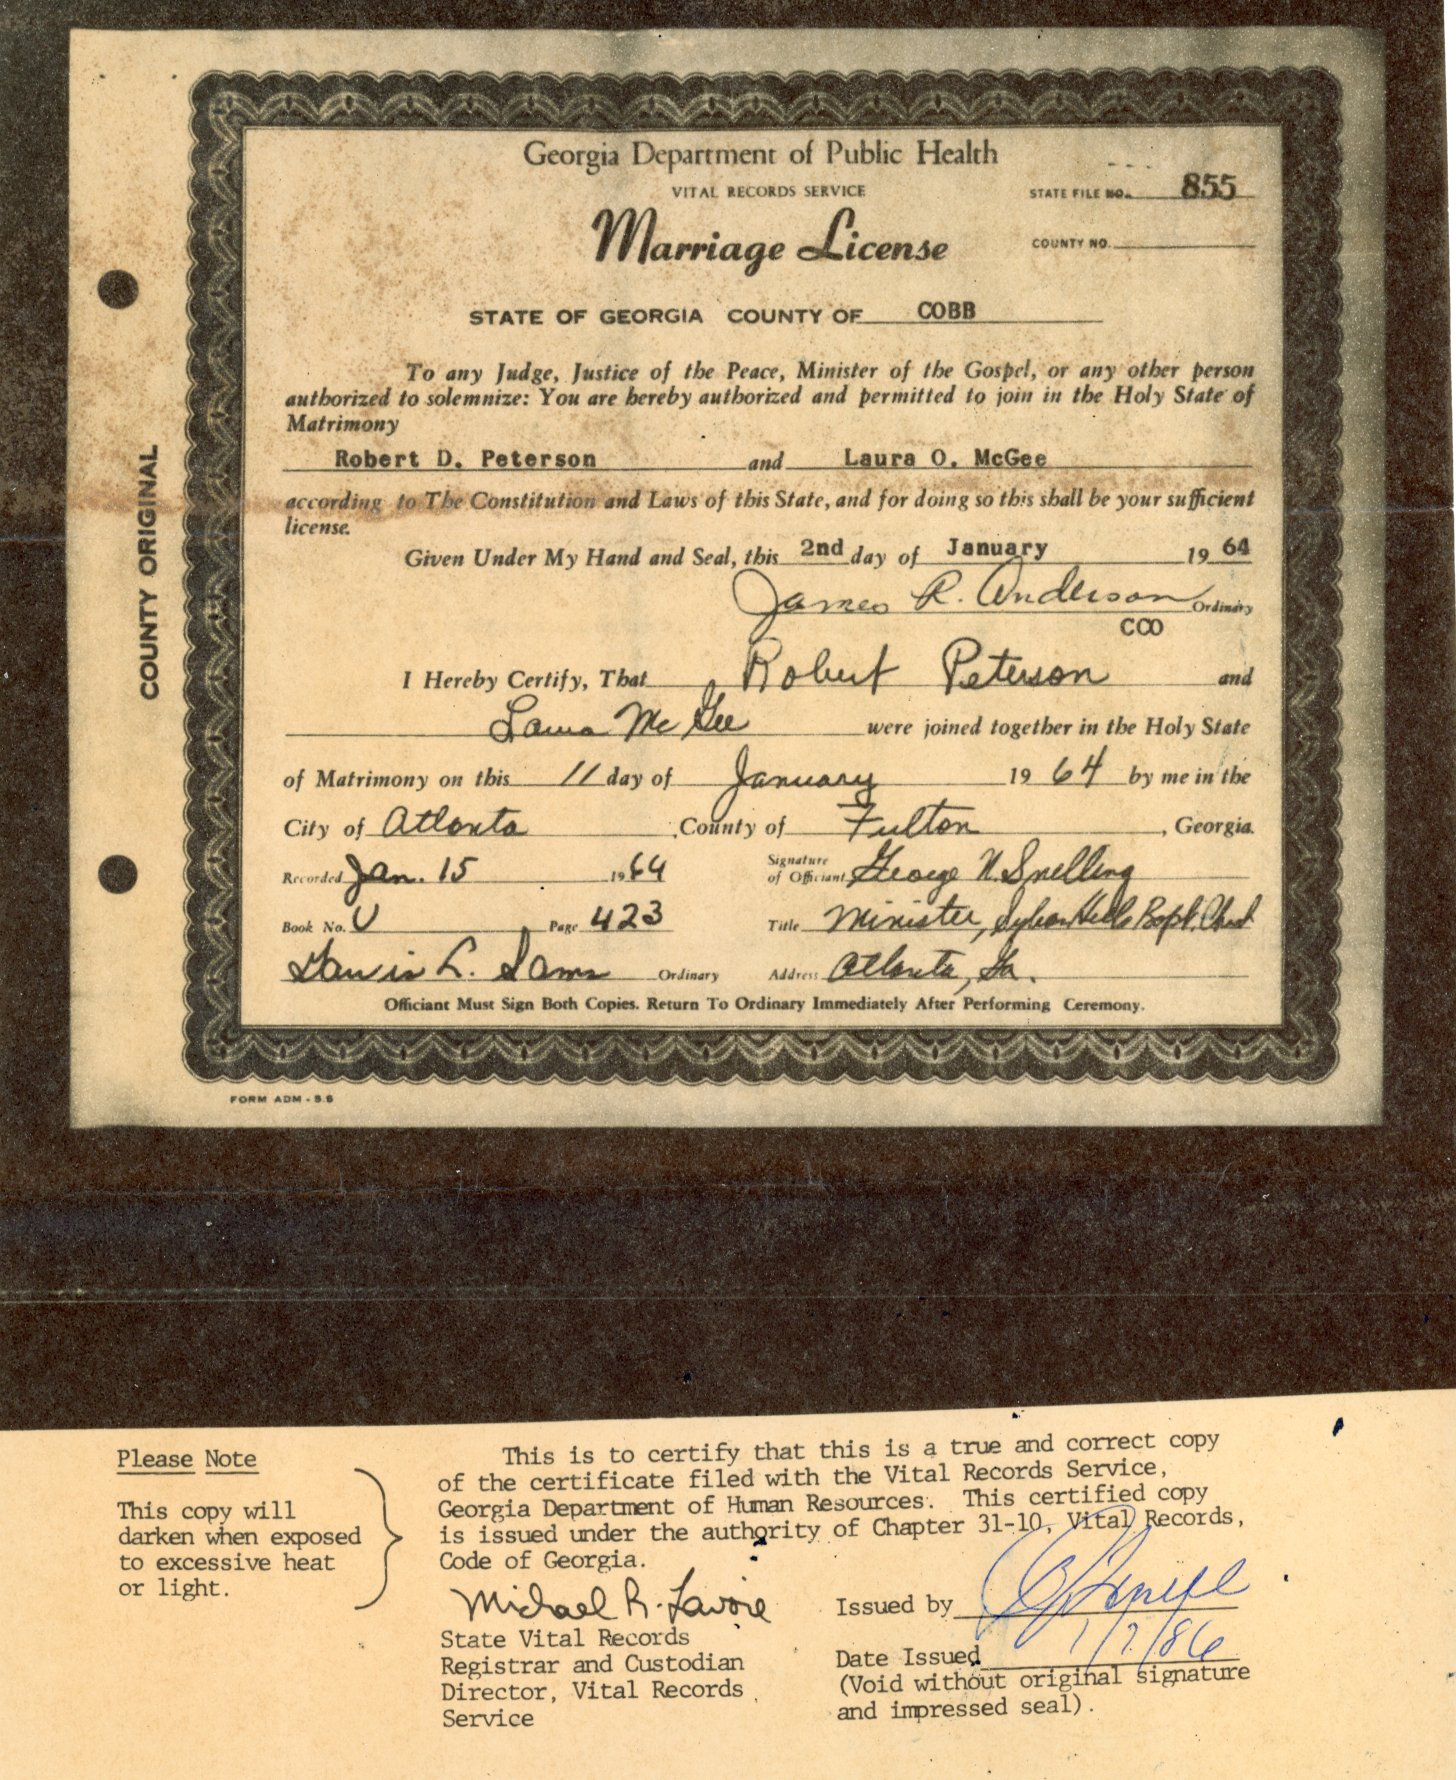 Georgia Department of Public Health
VITAL RECORDS SERVICE
STATE FILE NO. 855
Marriage License
COUNTY NO.
STATE OF GEORGIA COUNTY OF COBB
To any Judge, Justice of the Peace, Minister of the Gospel, or any other person
authorized to solemnize: You are hereby authorized and permitted to join in the Holy State of
Matrimony
Robert D. Peterson and Laura O. McGee
according to The Constitution and Laws of this State, and for doing so this shall be your sufficient
license.
Given Under My Hand and Seal, this 2nd day of January 1964
James R. Anderson Ordinary
CCO
I Hereby Certify, That Robert Peterson and
Laura McGee were joined together in the Holy State
of Matrimony on this 11 day of January 1964 by me in the
City of Atlanta, County of Fulton, Georgia.
Recorded Jan. 15 1964
Signature of Officiant George N. Snelling
Book No. U Page 423
Title Minister, Sylvan Hills Bapt. Church
L. Sams Ordinary
Address Atlanta, Ga.
Officiant Must Sign Both Copies. Return To Ordinary Immediately After Performing Ceremony.
COUNTY ORIGINAL
FORM ADM - 5.5
Please Note
This copy will
darken when exposed
to excessive heat
or light.
This is to certify that this is a true and correct copy
of the certificate filed with the Vital Records Service,
Georgia Department of Human Resources. This certified copy
is issued under the authority of Chapter 31-10, Vital Records,
Code of Georgia.
Michael R. Lavoie
State Vital Records
Registrar and Custodian
Director, Vital Records
Service
Issued by
Date Issued 1/7/86
(Void without original signature
and impressed seal).